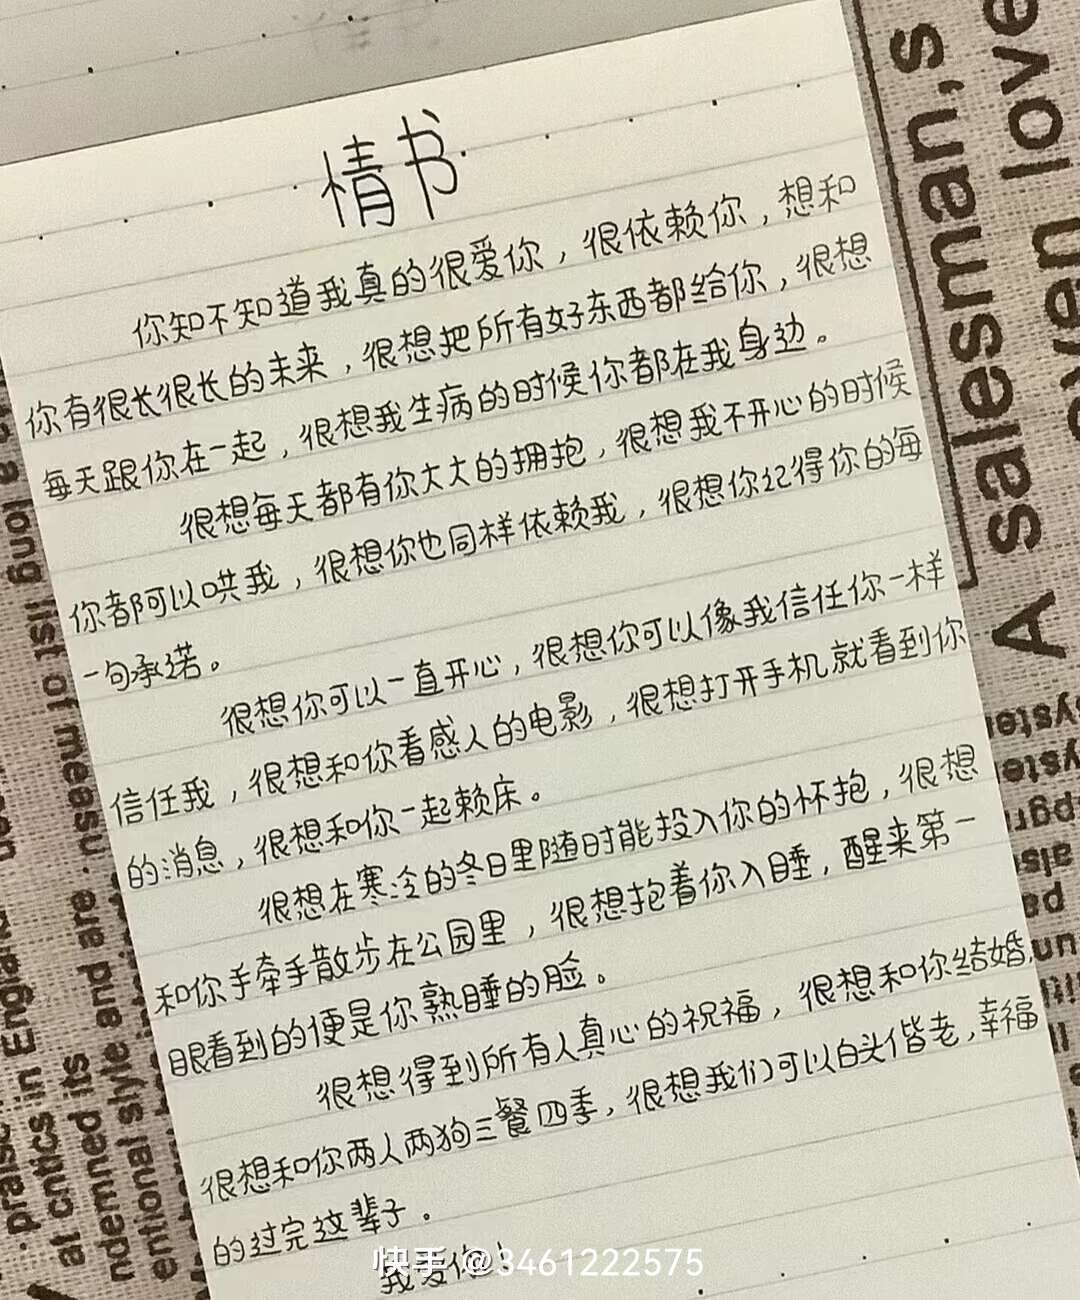 情书
你知不知道我真的很爱你，很依赖你，想和
你有很长很长的未来，很想把所有好东西都给你，很想
每天跟你在一起，很想我生病的时候你都在我身边。
很想每天都有你大大的拥抱，很想我不开心的时候
你都可以哄我，很想你也同样依赖我，很想你记得你的每
一句承诺。
很想你可以一直开心，很想你可以像我信任你一样
信任我，很想和你看感人的电影，很想打开手机就看到你
的消息，很想和你一起赖床。
很想在寒冷的冬日里随时能投入你的怀抱，很想
和你手牵手散步在公园里，很想抱着你入睡，醒来第一
眼看到的便是你熟睡的脸。
很想得到所有人真心的祝福，很想和你结婚，
很想和你两人两狗三餐四季，很想我们可以白头偕老，幸福
的过完这辈子。
我爱你！
快手 @3461222575
A salesman,s
oven love
a long list of meesn.
praise in England
at cntics in
ndemned its
entional style and are